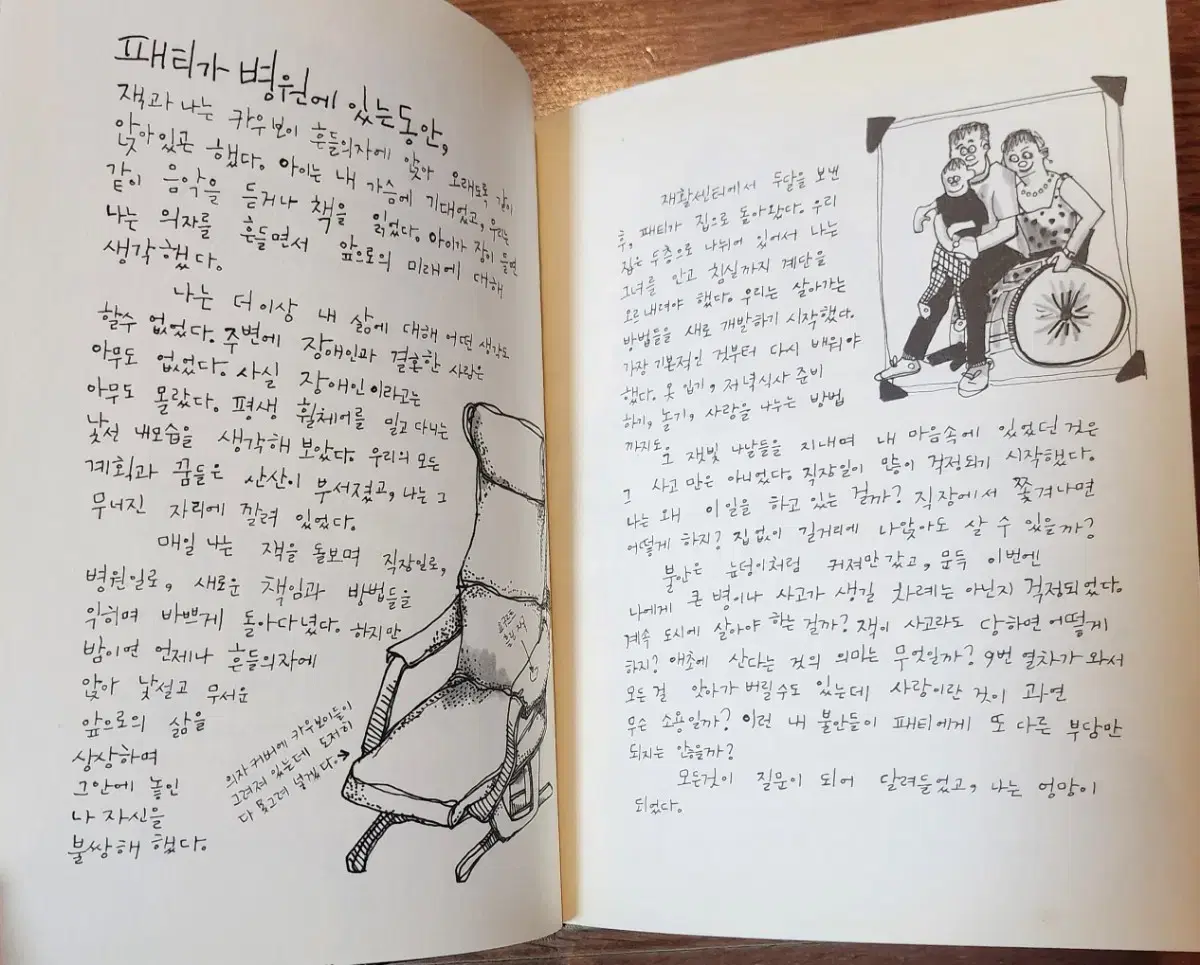 패티가 병원에 있는동안,
잭과 나는 카우보이 흔들의자에 앉아 오래도록 같이
앉아있곤 했다. 아이는 내 가슴에 기대었고, 우리는
같이 음악을 듣거나 책을 읽었다. 아이가 잠이 들면
나는 의자를 흔들면서 앞으로의 미래에 대해
생각했다.
나는 더이상 내 삶에 대해 어떤 생각도
할수 없었다. 주변에 장애인과 결혼한 사람은
아무도 없었다. 사실 장애인이라고는
아무도 몰랐다. 평생 휠체어를 밀고 다니는
낯선 내모습을 생각해 보았다. 우리의 모든
계획과 꿈들은 산산이 부서졌고, 나는 그
무너진 자리에 깔려 있었다.
매일 나는 잭을 돌보며 직장일로,
병원일로, 새로운 책임과 방법들을
익히며 바쁘게 돌아다녔다. 하지만
밤이면 언제나 흔들의자에
앉아 낯설고 무서운
앞으로의 삶을
상상하며
그안에 놓인
나 자신을
불쌍해 했다.
의자 커버에 카우보이들이
그려져 있는데 도저히
다 못그려 넣겠다.
재활센터에서 두달을 보낸
후, 패티가 집으로 돌아왔다. 우리
집은 두층으로 나뉘어 있어서 나는
그녀를 안고 침실까지 계단을
오르내려야 했다. 우리는 살아가는
방법들을 새로 개발하기 시작했다.
가장 기본적인 것부터 다시 배워야
했다. 옷 입기, 저녁식사 준비
하기, 놀기, 사랑을 나누는 방법
까지도.
그 잿빛 나날들을 지내며 내 마음속에 있었던 것은
그 사고 만은 아니었다. 직장일이 많이 걱정되기 시작했다.
나는 왜 이 일을 하고 있는 걸까? 직장에서 쫓겨나면
어떻게 하지? 집없이 길거리에 나앉아도 살 수 있을까?
불안은 눈덩이처럼 커져만 갔고, 문득 이번엔
나에게 큰 병이나 사고가 생길 차례는 아닌지 걱정되었다.
계속 도시에 살아야 하는 걸까? 잭이 사고라도 당하면 어떻게
하지? 애초에 산다는 것의 의미는 무엇일까? 9번 열차가 와서
모든 걸 앗아가 버릴수도 있는데 사랑이란 것이 과연
무슨 소용일까? 이런 내 불안들이 패티에게 또 다른 부담만
되지는 않을까?
모든것이 질문이 되어 달려들었고, 나는 엉망이
되었다.